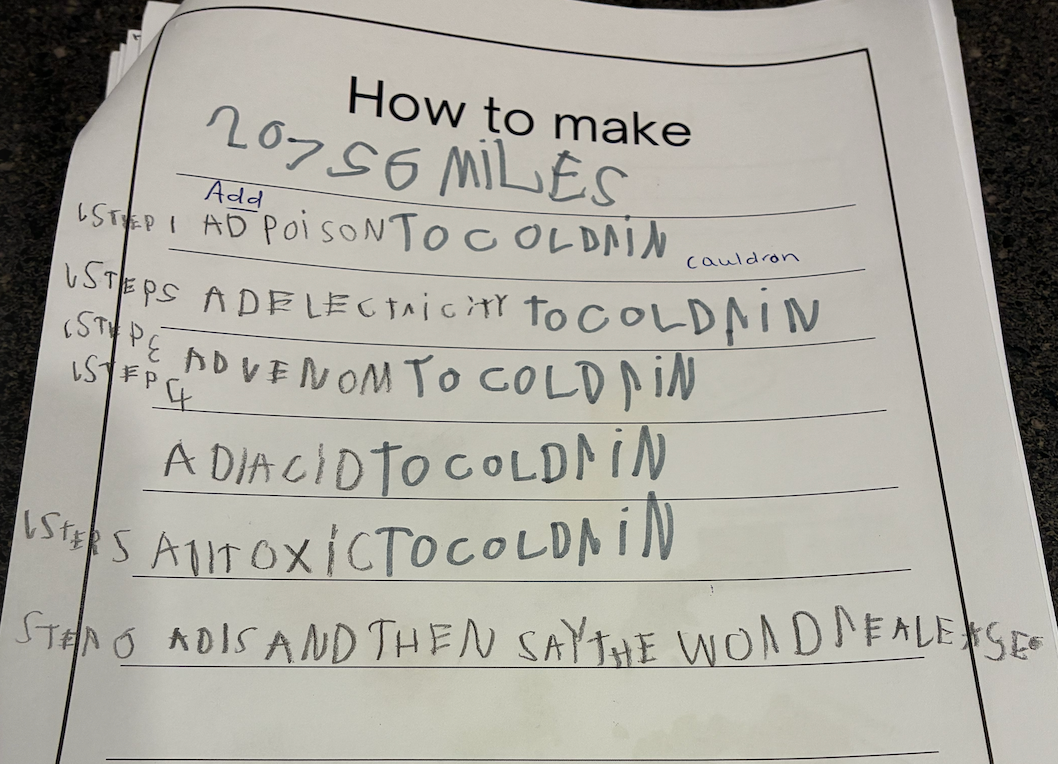 How to make
20756 MILES
Add
STEP 1 AD POISON TO COLDRIN
cauldron
STEPS ADELECTRICITY TO COLDRIN
STEP
AD VENOM TO COLDRIN
STEP 4
AD ACID TO COLDRIN
STEP 5 TOXIC TO COLDRIN
STEP 6 AND THEN SAY THE WORD